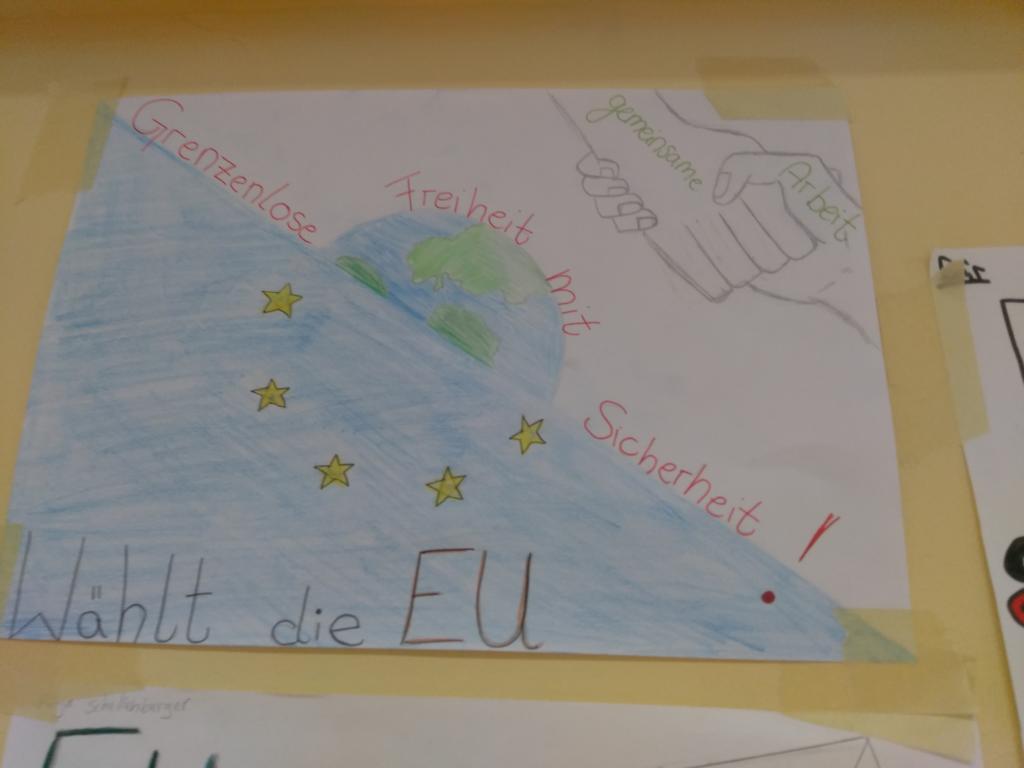 Grenzenlose Freiheit mit Sicherheit!
gemeinsame Arbeit
Wählt die EU
Schellenberger
EU